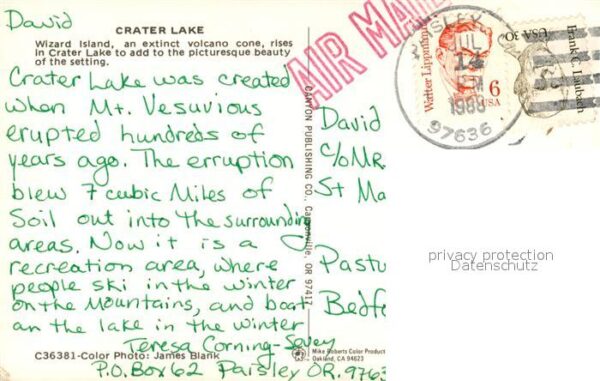 David
CRATER LAKE
Wizard Island, an extinct volcano cone, rises
in Crater Lake to add to the picturesque beauty
of the setting.
Crater Lake was created
when Mt. Vesuvious
erupted hundreds of
years ago. The erruption
blew 7 cubic Miles of
Soil out into the surrounding
areas. Now it is a
recreation area, where
people ski in the winter
on the Mountains, and boat
an the lake in the winter
Teresa Corning-Sevey
P.O. Box 62 Paisley OR. 9763
C36381-Color Photo: James Blank
CANYON PUBLISHING CO., Canyonville, OR 97417
Mike Roberts Color Product
Oakland, CA 94623
AIR MAIL
PAISLEY
JUL
14
1986
97636
Walter Lippmann
6
USA
USA 30c
Frank C. Laubach
David
C/O MR
St Ma
Pastu
Bedfo
privacy protection
Datenschutz